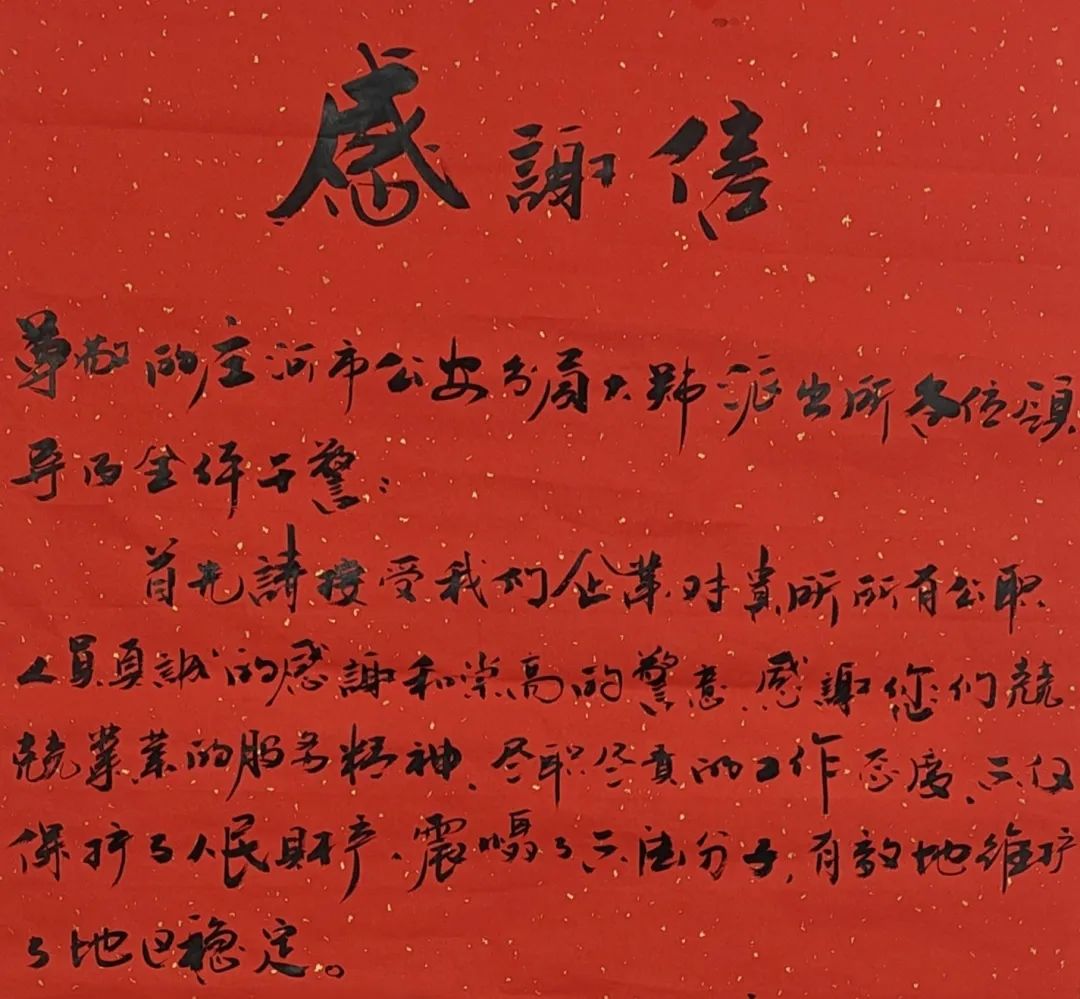 感謝信
尊敬的庄河市公安分局大郑派出所各位領
导及全体干警：
首先請接受我们企業对貴所所有公职
人員真誠的感謝和崇高的警意，感謝您们兢
兢業業的服务精神、尽职尽責的工作态度、不仅
保护了人民財产、震嚇了不法分子，有效地维护
了地区穩定。